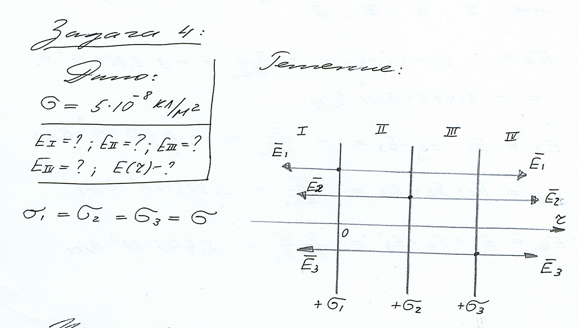 Задача 4:
Дано:
σ = 5·10⁻⁸ Кл/м²
E_I = ? ; E_II = ? ; E_III = ?
E_IV = ? ; E(r) - ?
σ₁ = σ₂ = σ₃ = σ
Решение:
I II III IV
E̅₁ E̅₁
E̅₂ E̅₂
r
0
E̅₃ E̅₃
+σ₁ +σ₂ +σ₃